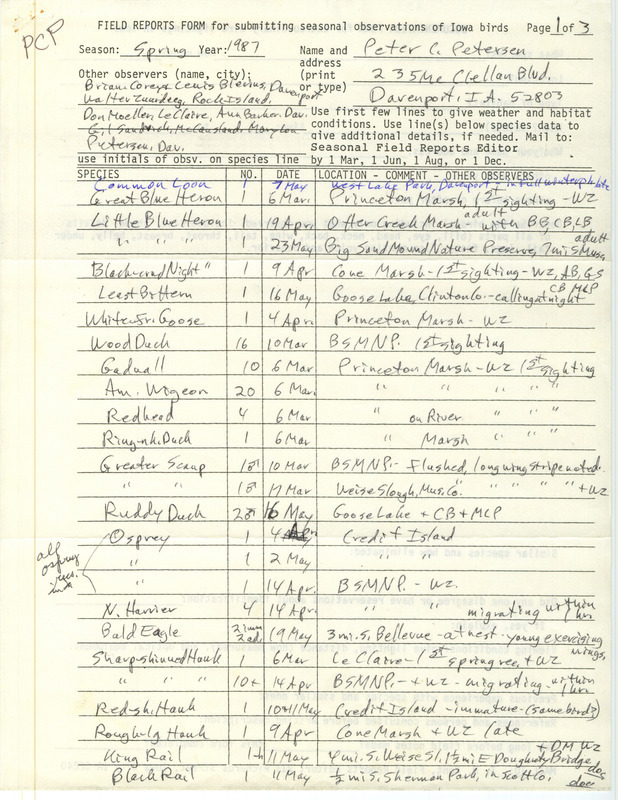 PCP
FIELD REPORTS FORM for submitting seasonal observations of Iowa birds Page 1 of 3
Season: Spring Year: 1987 Name and Peter C. Petersen
address
Other observers (name, city): (print 235 McClellan Blvd.
Brian Corey, Lewis Blevins, Davenport or type)
Walter Zuurdeeg, Rock Island, Davenport, I.A. 52803
Don Moeller, LeClaire, Ann Barker, Dav. Use first few lines to give weather and habitat
conditions. Use line(s) below species data to
McCausland, Mary Lou give additional details, if needed. Mail to:
Petersen, Dav. Seasonal Field Reports Editor
use initials of obsv. on species line by 1 Mar, 1 Jun, 1 Aug, or 1 Dec.
SPECIES NO. DATE LOCATION - COMMENT - OTHER OBSERVERS
Common Loon 1 7 May West Lake Park, Davenport in full winter
Great Blue Heron 1 6 Mar. Princeton Marsh, 1st sighting - WZ
Little Blue Heron 1 19 Apr. Otter Creek Marsh - adult with BB, CB, LB
" " " 1 23 May Big Sand Mound Nature Preserve, 7 mi S Musc. adult
Black-crnd Night " 1 9 Apr Cone Marsh - 1st sighting - WZ, AB, GS
Least Bittern 1 16 May Goose Lake, Clinton Co. - calling at night CB MLP
White-fr. Goose 1 4 Apr. Princeton Marsh - WZ
Wood Duck 16 10 Mar BSMNP. 1st sighting
Gadwall 10 6 Mar Princeton Marsh - WZ 1st sighting
Am. Wigeon 20 6 Mar. " " " " "
Redhead 4 6 Mar " on River " " "
Ring-nk. Duck 1 6 Mar " Marsh " " "
Greater Scaup 1♂ 10 Mar BSMNP. - flushed, long wing stripe noted.
" " 1♂ 17 Mar Weise Slough, Mus. Co. " " " " + WZ
Ruddy Duck 2♂ 16 May Goose Lake + CB + MLP
Osprey 1 4 Apr Credit Island
" 1 2 May " "
" 1 14 Apr. BSMNP. - WZ.
all osprey
N. Harrier 4 14 Apr. " " migrating within 1 hr.
Bald Eagle 2 imm 2 ad. 19 May 3 mi. S. Bellevue - at nest - young exercising wings.
Sharp-shinned Hawk 1 6 Mar Le Claire - 1st spring rec, + WZ
" " " 10+ 14 Apr BSMNP. - + WZ - migrating - within 1 hr
Red-sh. Hawk 1 10+11 May Credit Island - immature - (same bird?)
Rough-lg Hawk 1 9 Apr Cone Marsh + WZ late
+ DM WZ
King Rail 1 11 May 4 mi. S. Weise Sl. 1½ mi E Dougherty Bridge doc
Black Rail 1 11 May ½ mi S. Sherman Park, in Scott Co. doc